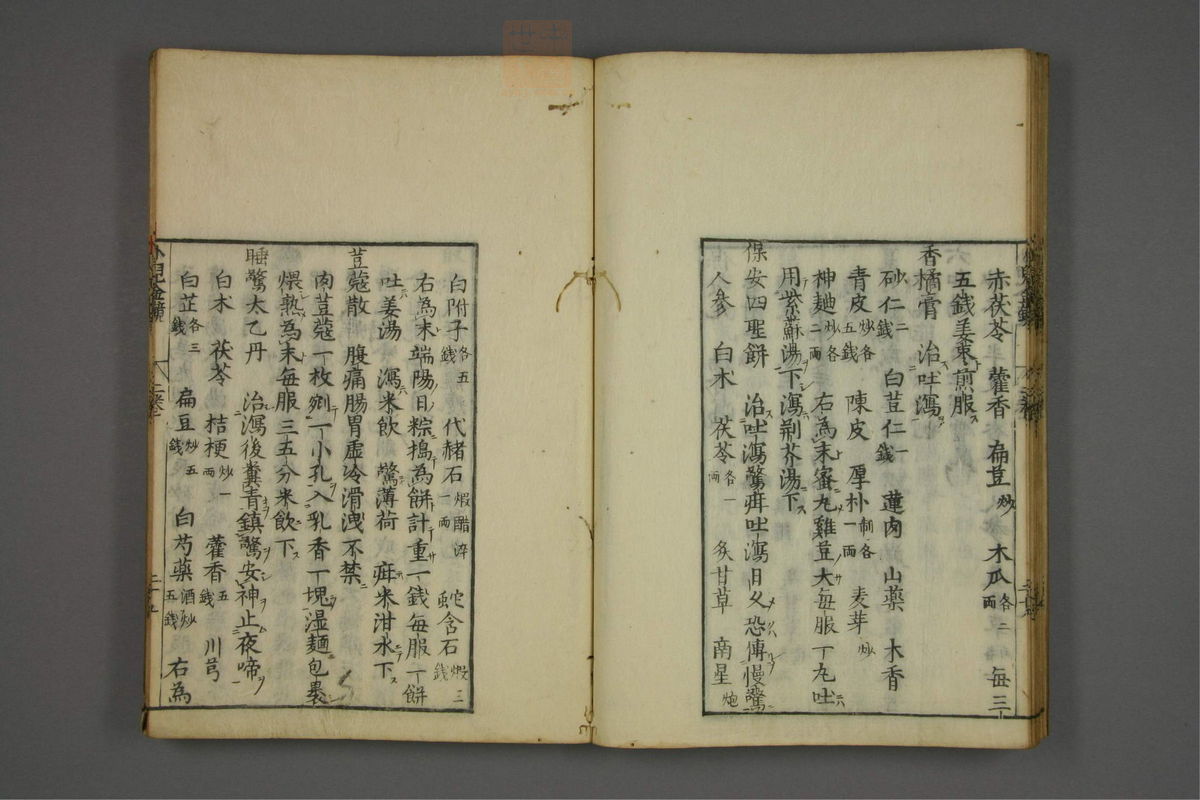 赤茯苓 藿香 扁荳炒 木瓜各二兩 每三
五錢姜棗煎服ス
香橘膏 治吐瀉ヲ
砂仁二錢 白荳仁一錢 蓮肉 山藥 木香
青皮炒各五錢 陳皮 厚朴制各一兩 麦芽炒
神麯炒各二兩 右為末蜜丸雞荳大每服一丸吐ハ
用紫蘇湯下瀉ハ荆芥湯下ス
保安四聖餅 治吐瀉驚疳吐瀉日久恐傳慢驚
人參 白朮 茯苓各一兩 炙甘草 南星炮
白附子各五錢 代赭石煆醋淬一兩 蛇含石煆三錢
右為末端陽日粽搗為餅計重一錢每服一餅
吐姜湯 瀉米飲 驚薄荷 疳米泔水下ス
荳蔻散 腹痛腸胃虚冷滑洩不禁
肉荳蔻一枚剜一小孔入乳香一塊湿麺包裹
煨熟為末每服三五分米飲下ス
睡驚太乙丹 治瀉後糞青鎮驚安神止夜啼ヲ
白朮 茯苓 桔梗炒一兩 藿香五錢 川芎
白芷各三錢 扁豆炒五錢 白芍藥酒炒五錢 右為